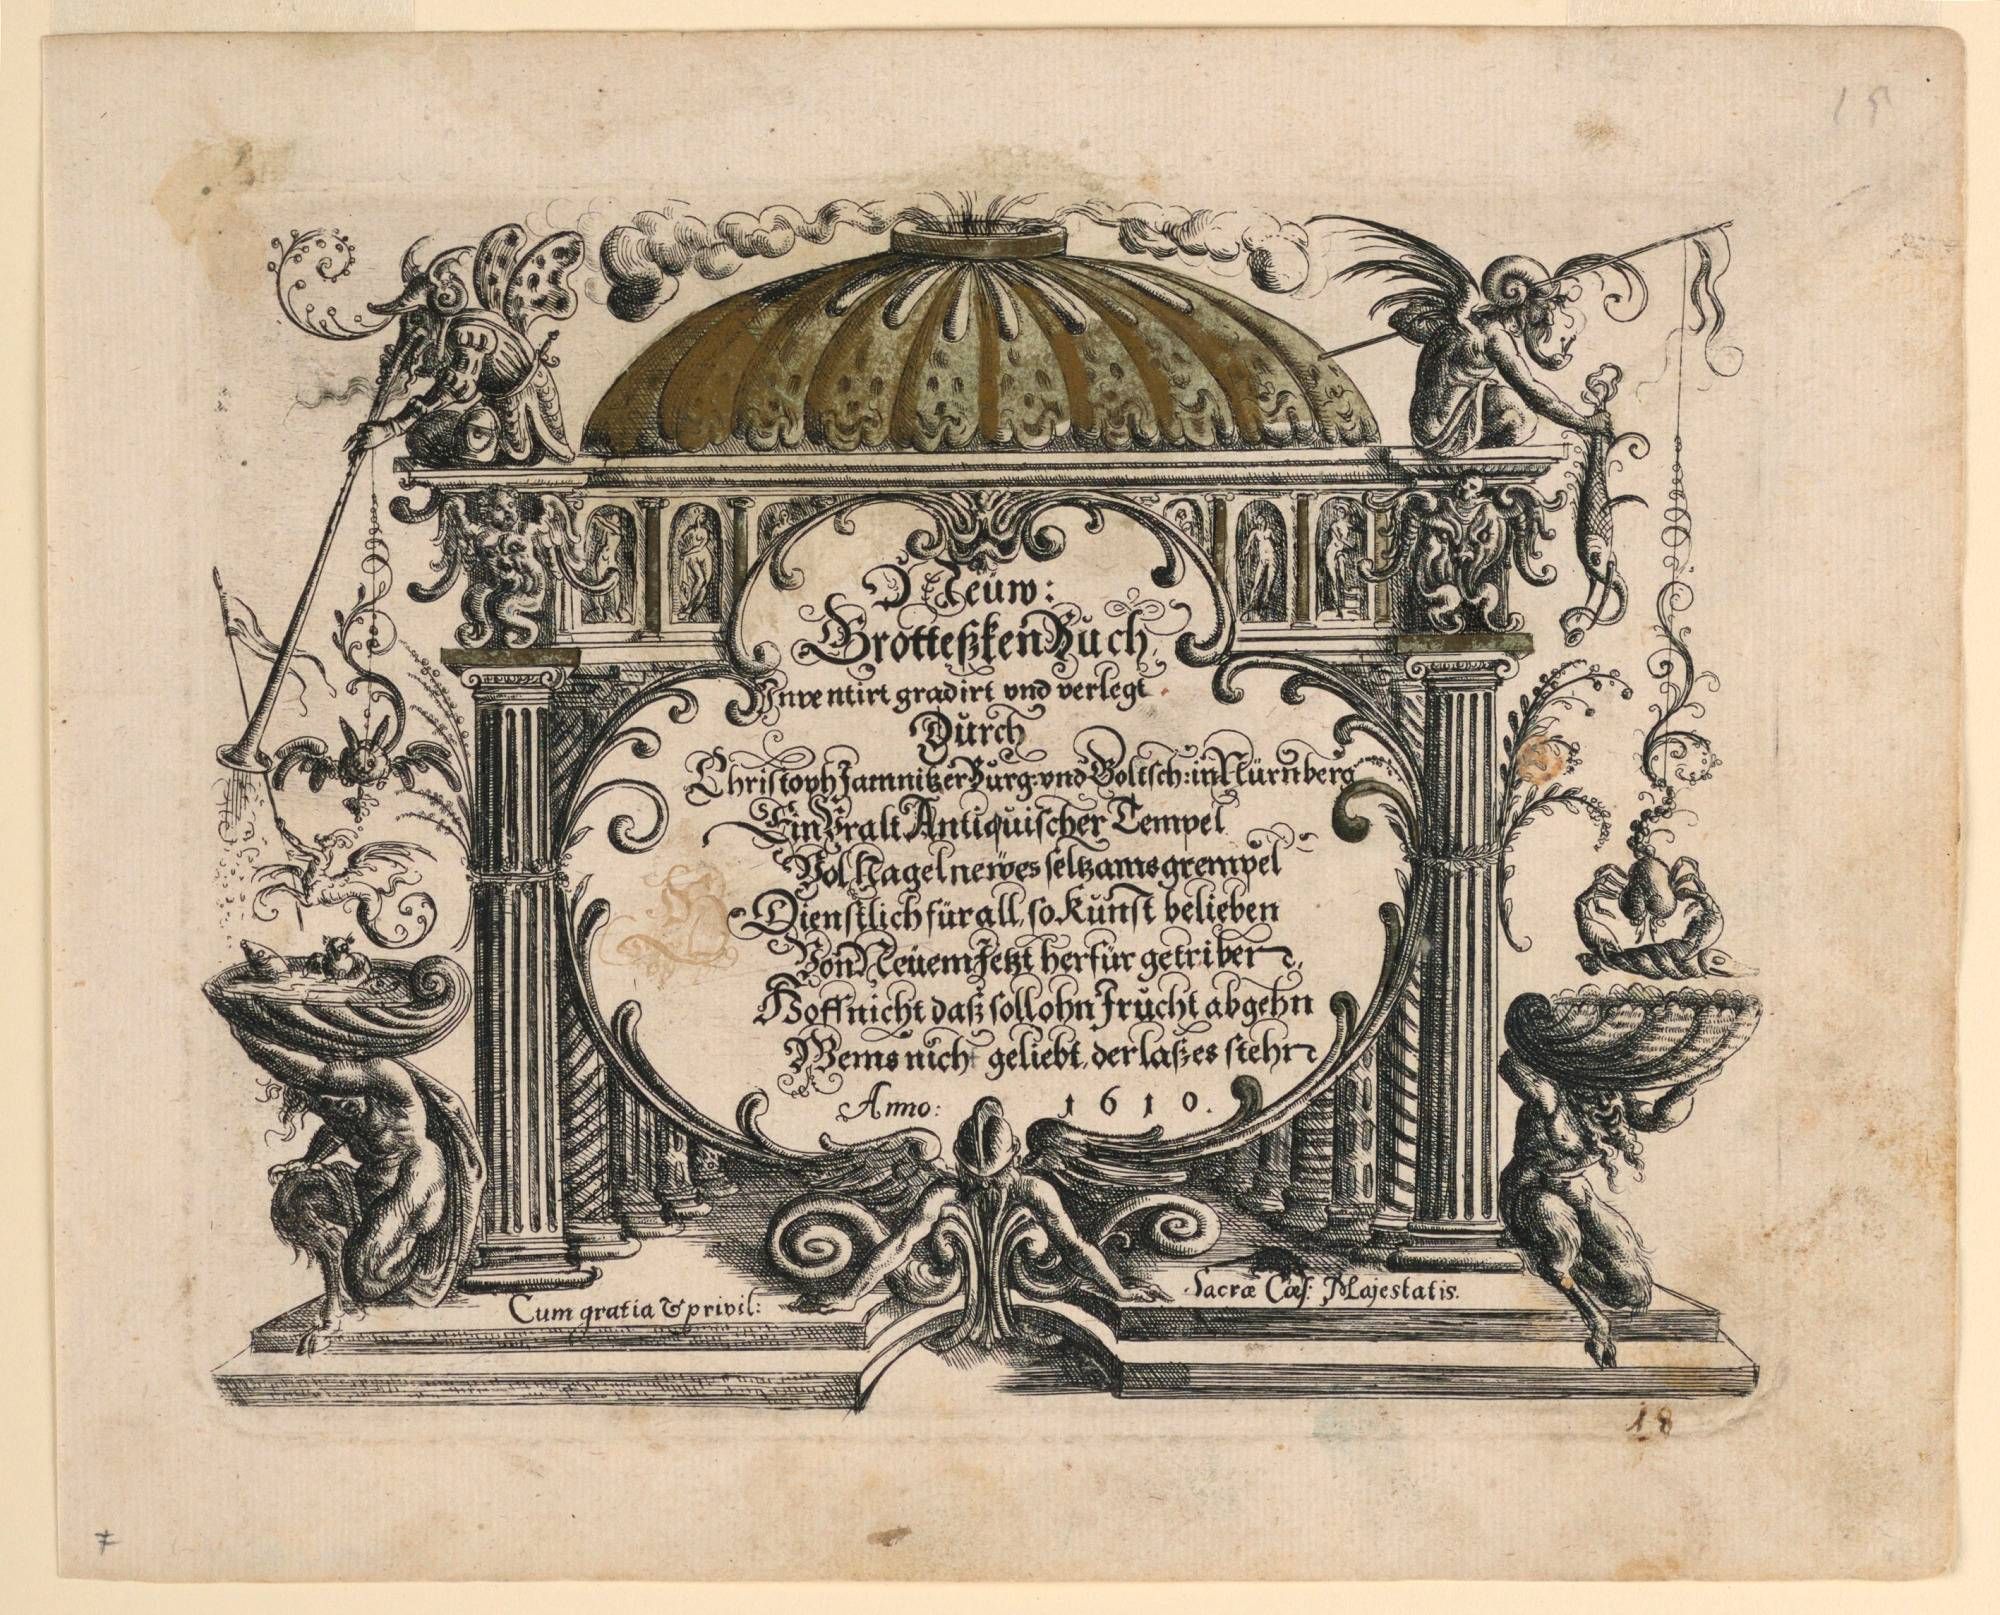 15
Neüw:
Grotteßken Buch
Inventirt gradirt vnd verlegt
Durch
Christoph Jamnitzer Burg: vnd Goltsch: in Nürnberg
Ein Vralt Antiquischer Tempel
Vol Nagelnewes seltzams grempel
Dienstlich für all, so Kunst belieben
Von Neüem Jetzt herfür getriben
Hoff nicht daß soll ohn Frücht abgehn
Wems nicht geliebt, der laß es stehn
Anno: 1610.
Cum gratia & privil:
Sacræ Cæs: Majestatis.
18
7